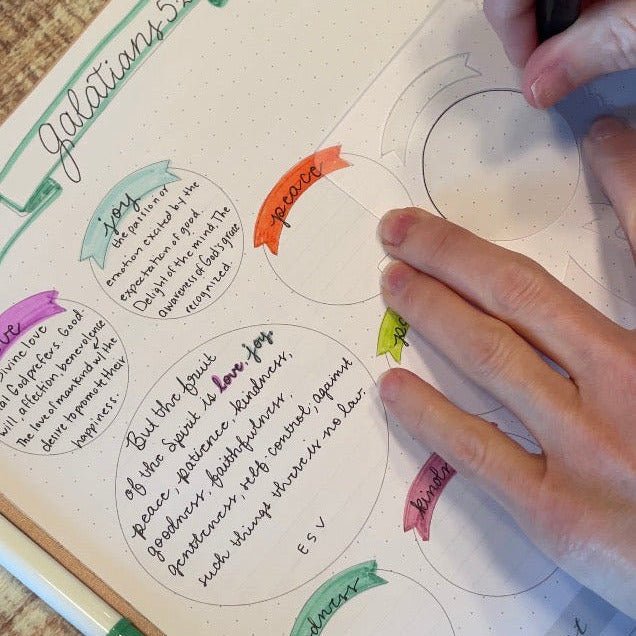 galatians 5:2
joy
the passion or
emotion excited by the
expectation of good.
Delight of the mind, The
awareness of God's grace
recognized
peace
divine love
God prefers. Good-
will, affection, benevolence
The love of mankind w/ the
desire to promote their
happiness.
But the fruit
of the Spirit is love, joy
peace, patience, kindness,
goodness, faithfulness,
gentleness, self control; against
such things there is no law.
ESV
pa
kindn
dness